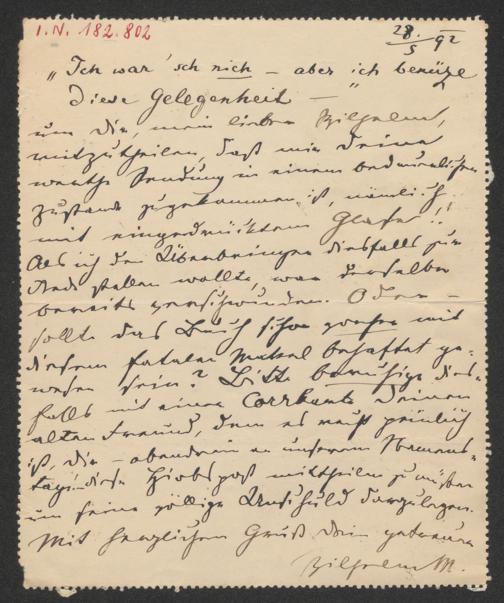 I.N. 182.802
28./5 92
„Ich war' sch nich – aber ich benütze
diese Gelegenheit – "
um Dir, mein lieber Wilhelm,
mitzutheilen, daß mir Deine
werthe Sendung in einem bedauerlichen
Zustande zugekommen ist, nämlich
mit eingedrücktem Glase!!
Als ich den Überbringer diesfalls zur
Rede stellen wollte, war derselbe
bereits verschwunden. Oder –
sollte das Buch schon vorher mit
diesem fatalen Makel behaftet ge-
wesen sein? Bitte beruhige dies-
falls mit einer Corrkarte Deinen
alten Freund, dem es sehr peinlich
ist, Dir – obendrein an unserem Namens-
tag diese Hiobspost mittheilen zu müssen
um seine völlige Unschuld darzulegen.
Mit herzlichem Gruß Dein getreuer
Wilhelm M.